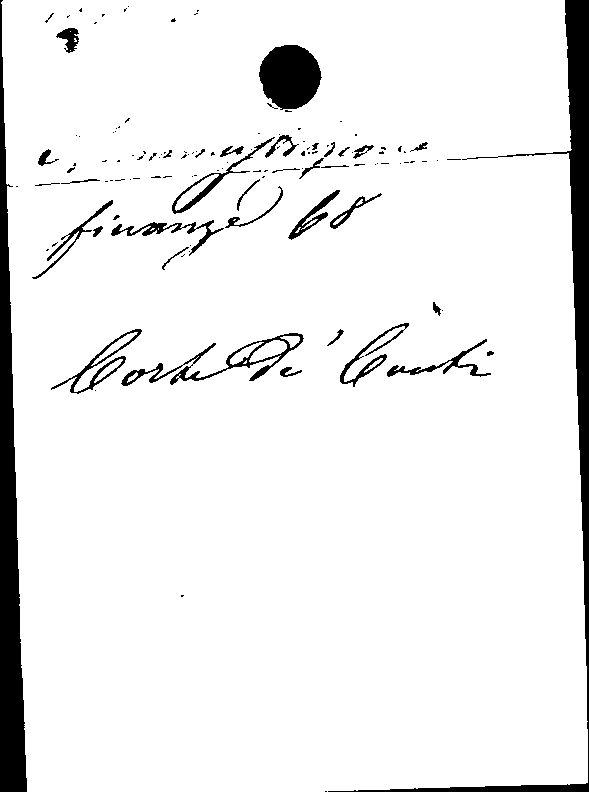 Amministrazione
finanze 68
Corte de' Conti